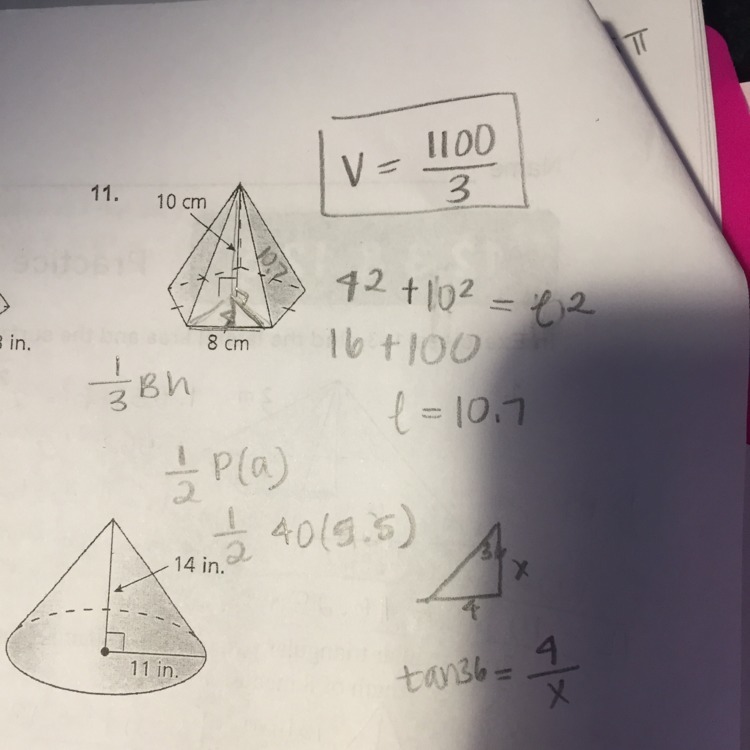 π
V = 1100/3
11.
10 cm
10.7
8 cm
in.
4² + 10² = l²
16 + 100
l = 10.7
1/3 Bh
1/2 P(a)
1/2 40(5.5)
14 in.
11 in.
36
x
4
tan36 = 4/x
Practice